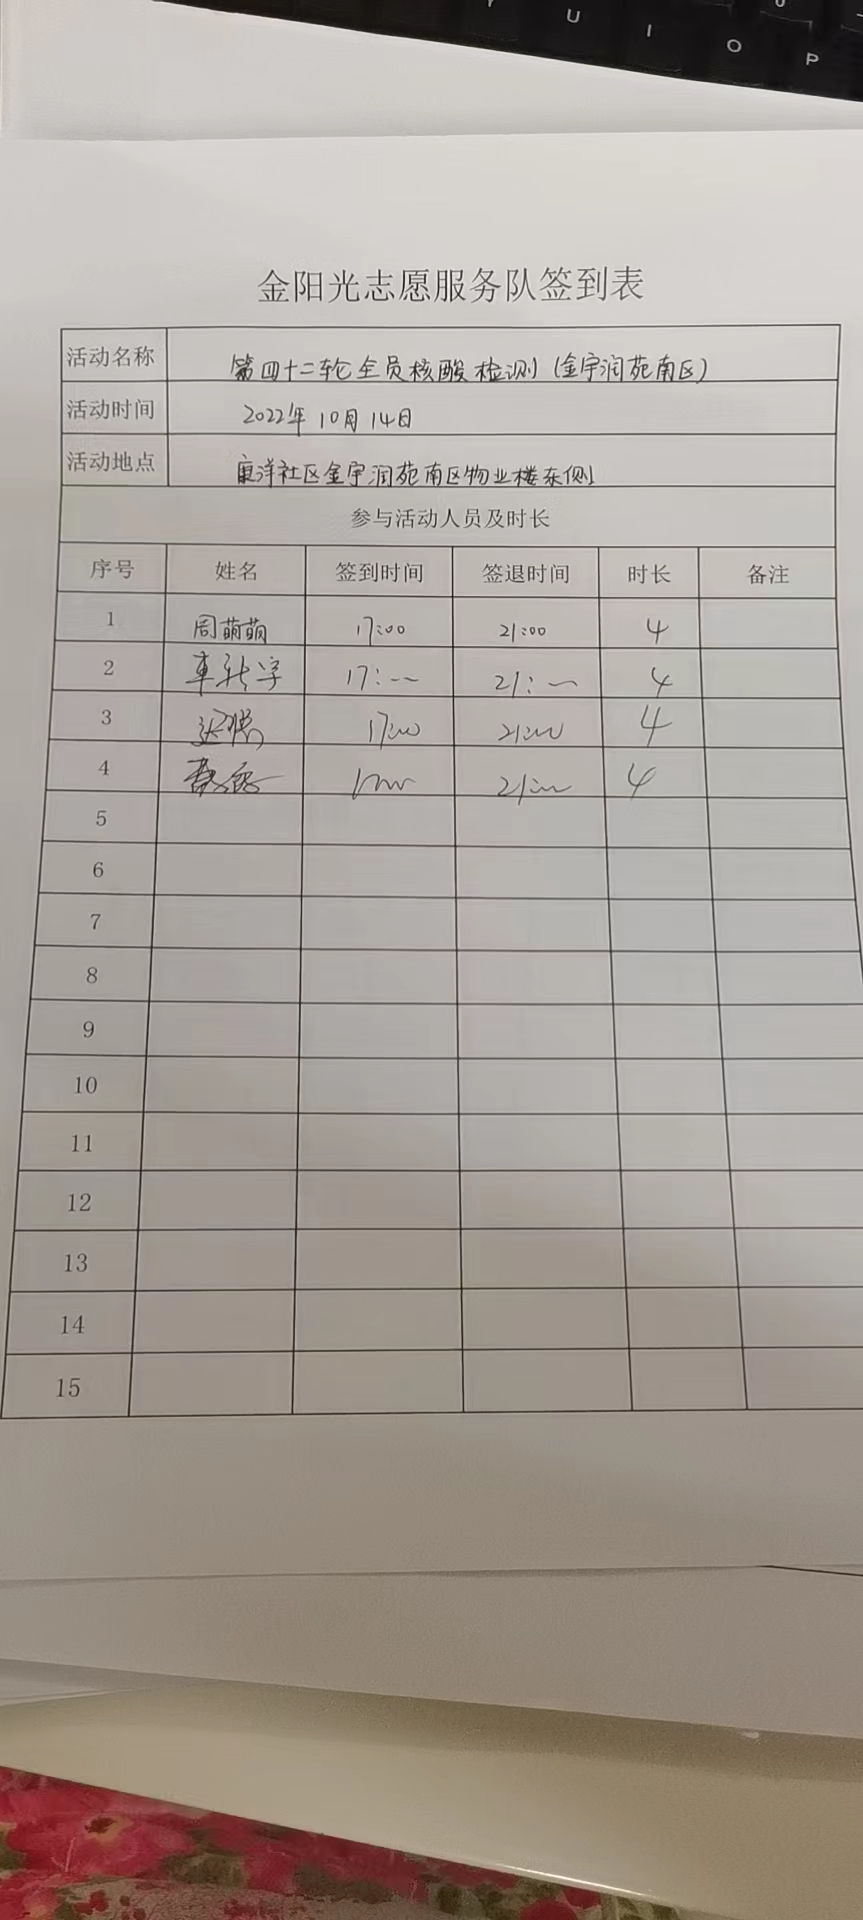 Y U I O P
金阳光志愿服务队签到表
活动名称 第四十二轮全员核酸检测(金宇润苑南区)
活动时间 2022年10月14日
活动地点 康洋社区金宇润苑南区物业楼东侧
参与活动人员及时长
序号 姓名 签到时间 签退时间 时长 备注
1 周萌萌 17:00 21:00 4
2 17:00 21:00 4
3 17:00 21:00 4
4 21:00 4
5
6
7
8
9
10
11
12
13
14
15